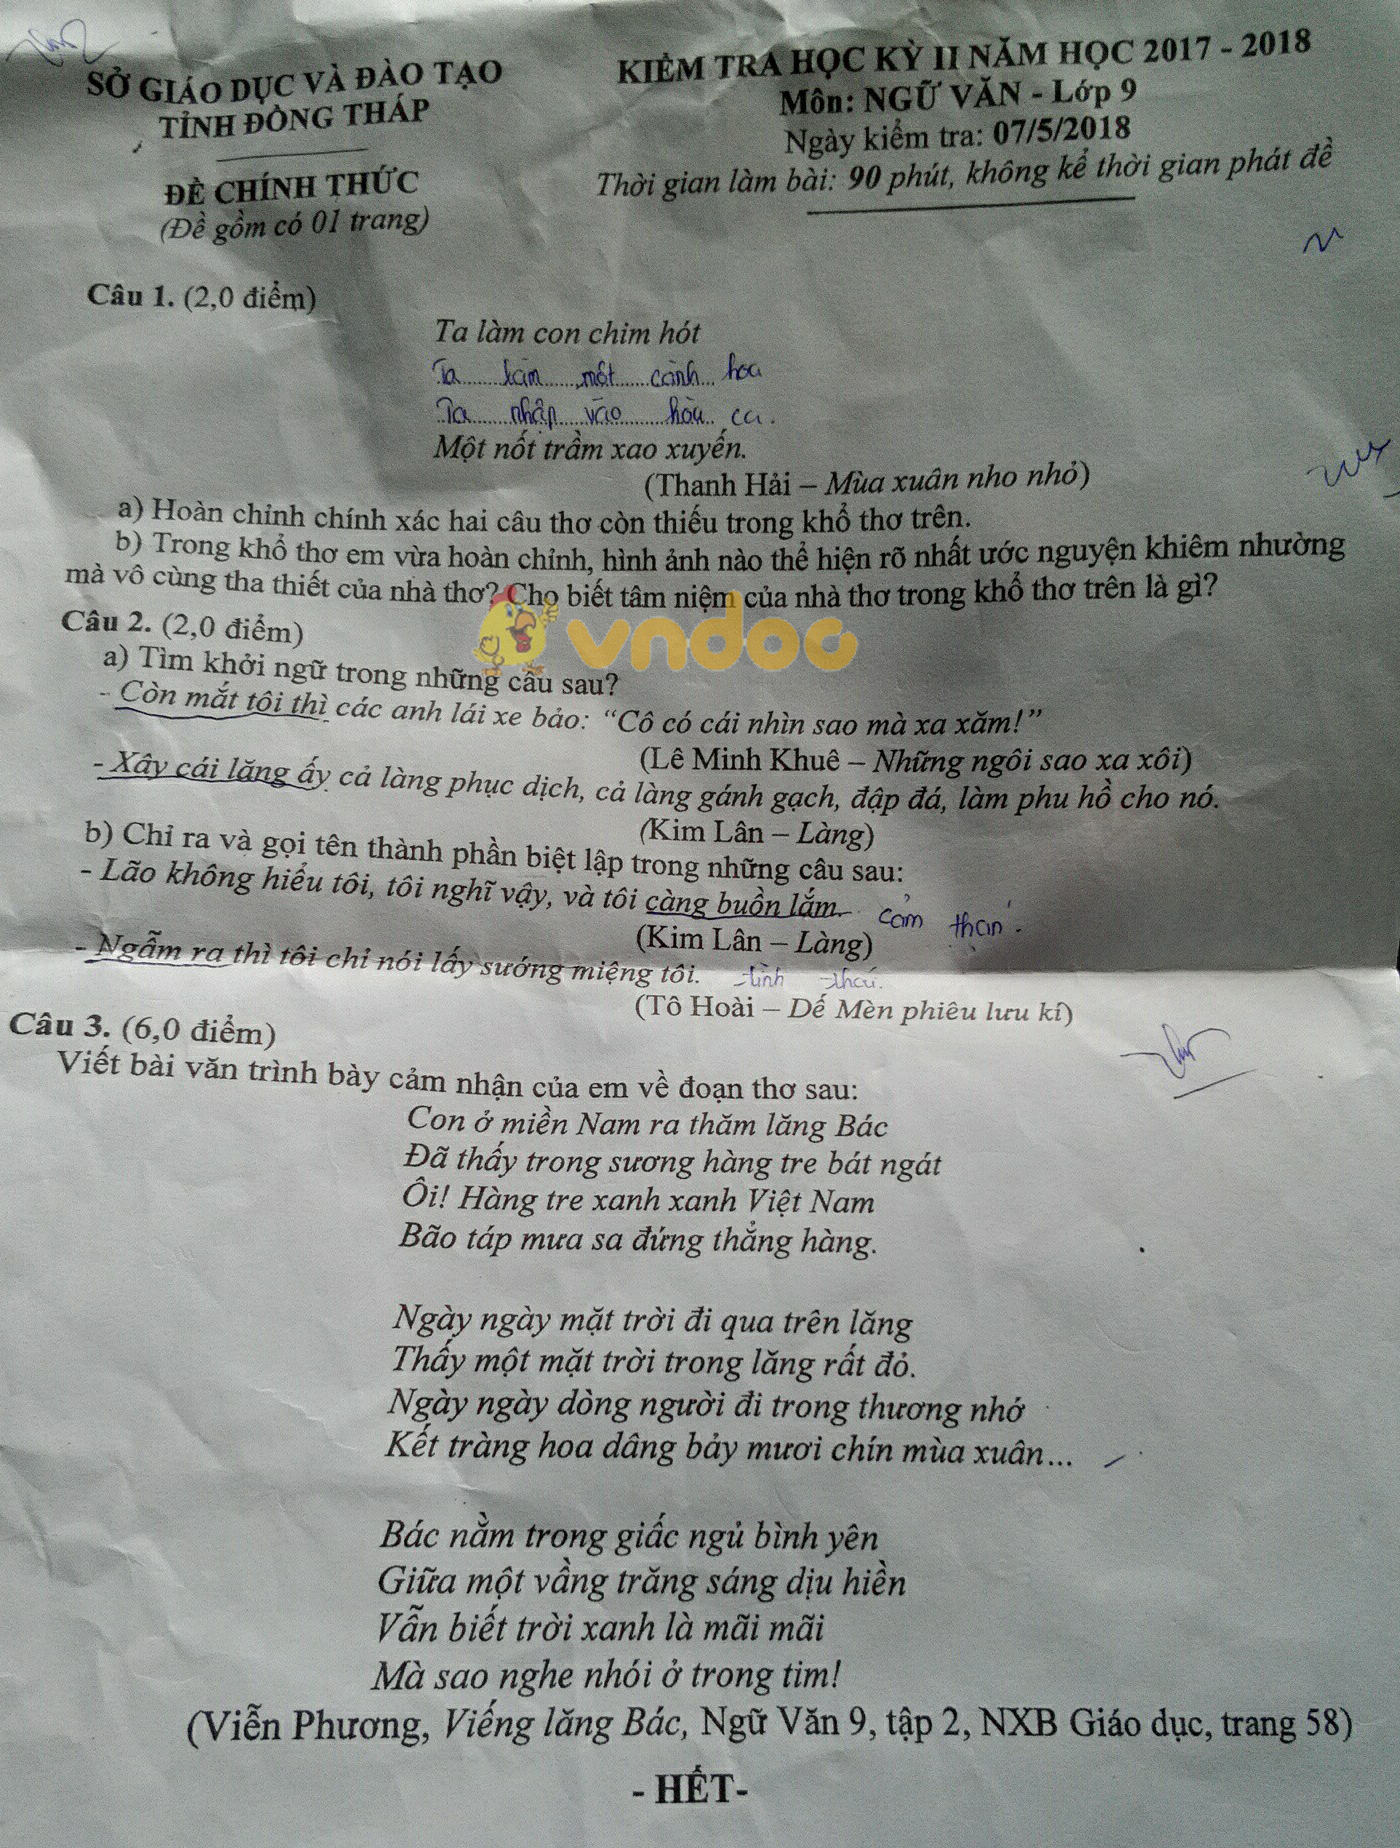 SỞ GIÁO DỤC VÀ ĐÀO TẠO
TỈNH ĐỒNG THÁP
ĐỀ CHÍNH THỨC
(Đề gồm có 01 trang)
KIỂM TRA HỌC KỲ II NĂM HỌC 2017 - 2018
Môn: NGỮ VĂN - Lớp 9
Ngày kiểm tra: 07/5/2018
Thời gian làm bài: 90 phút, không kể thời gian phát đề
Câu 1. (2,0 điểm)
Ta làm con chim hót
Ta làm một cành hoa
Ta nhập vào hòa ca.
Một nốt trầm xao xuyến.
(Thanh Hải – Mùa xuân nho nhỏ)
a) Hoàn chỉnh chính xác hai câu thơ còn thiếu trong khổ thơ trên.
b) Trong khổ thơ em vừa hoàn chỉnh, hình ảnh nào thể hiện rõ nhất ước nguyện khiêm nhường
mà vô cùng tha thiết của nhà thơ? Cho biết tâm niệm của nhà thơ trong khổ thơ trên là gì?
vndoc
Câu 2. (2,0 điểm)
a) Tìm khởi ngữ trong những câu sau?
- Còn mắt tôi thì các anh lái xe bảo: “Cô có cái nhìn sao mà xa xăm!”
(Lê Minh Khuê – Những ngôi sao xa xôi)
- Xây cái lăng ấy cả làng phục dịch, cả làng gánh gạch, đập đá, làm phu hồ cho nó.
(Kim Lân – Làng)
b) Chỉ ra và gọi tên thành phần biệt lập trong những câu sau:
- Lão không hiểu tôi, tôi nghĩ vậy, và tôi càng buồn lắm. cảm thán.
(Kim Lân – Làng)
- Ngẫm ra thì tôi chỉ nói lấy sướng miệng tôi. tình thái.
(Tô Hoài – Dế Mèn phiêu lưu kí)
Câu 3. (6,0 điểm)
Viết bài văn trình bày cảm nhận của em về đoạn thơ sau:
Con ở miền Nam ra thăm lăng Bác
Đã thấy trong sương hàng tre bát ngát
Ôi! Hàng tre xanh xanh Việt Nam
Bão táp mưa sa đứng thẳng hàng.
Ngày ngày mặt trời đi qua trên lăng
Thấy một mặt trời trong lăng rất đỏ.
Ngày ngày dòng người đi trong thương nhớ
Kết tràng hoa dâng bảy mươi chín mùa xuân...
Bác nằm trong giấc ngủ bình yên
Giữa một vầng trăng sáng dịu hiền
Vẫn biết trời xanh là mãi mãi
Mà sao nghe nhói ở trong tim!
(Viễn Phương, Viếng lăng Bác, Ngữ Văn 9, tập 2, NXB Giáo dục, trang 58)
- HẾT-